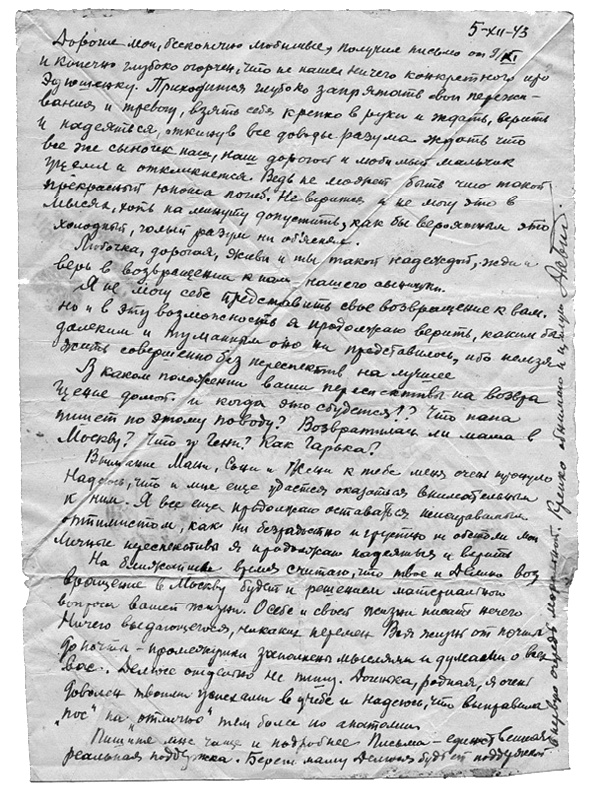 5-XII-43
Дорогие мои, бесконечно любимые, получил письмо от 9/XI
и конечно глубоко огорчен, что не нашел ничего конкретного про
Эдюшеньку. Приходится глубоко запрятать свои пережи-
вания и тревогу, взять себя крепко в руки и ждать, верить
и надеяться, откинув все доводы разума ждать что
все же сыночек наш, наш дорогой и любимый мальчик
уцелел и откликнется. Ведь не может быть что такой
прекрасный юноша погиб. Не верится и не могу это в
мыслях, хоть на минуту допустить, как бы вероятным это
холодный, голый разум ни объяснял.
Любочка, дорогая, живи и ты такой надеждой, жди и
верь в возвращении к нам нашего
Я не могу себе представить свое возвращение к вам,
но и в эту возможность я продолжаю верить, каким бы
далеким и туманным оно ни представилось, ибо нельзя
жить совершенно без перспектив на лучшее
В каком положении ваши перспективы на возвра
щение домой и когда это сбудется!? Что папа
пишет по этому поводу? Возвратилась ли мама в
Москву? Что у Гени? Как Гарька?
Внимание Мани, Сони и Жени к тебе меня очень тронуло
Надеюсь, что и мне еще удастся оказаться внимательным
к ним. Я все еще продолжаю оставаться неисправимым
оптимистом, как ни безрадостно и грустно ни обстоят мои
личные перспективы я продолжаю надеяться и верить
На ближайшее время считаю, что твое и Делино воз
вращение в Москву будет и решением материального
вопроса вашей жизни. О себе и своей жизни писать нечего
Ничего выдающегося, никаких перемен Вся жизнь от почты
до почты - промежутки заполнены мыслями и думами о всех
вас. Делюсе отдельно не пишу. Доченька, родная, я очень
доволен твоими успехами в учебе и надеюсь, что выправила
"пос" на "отлично" тем более по анатомии
Пишите мне чаще и подробнее Письма - единственная
реальная поддержка. Береги маму Делюся будь ей поддержкой
в первую очередь моральной. Крепко обнимаю и целую Давид.